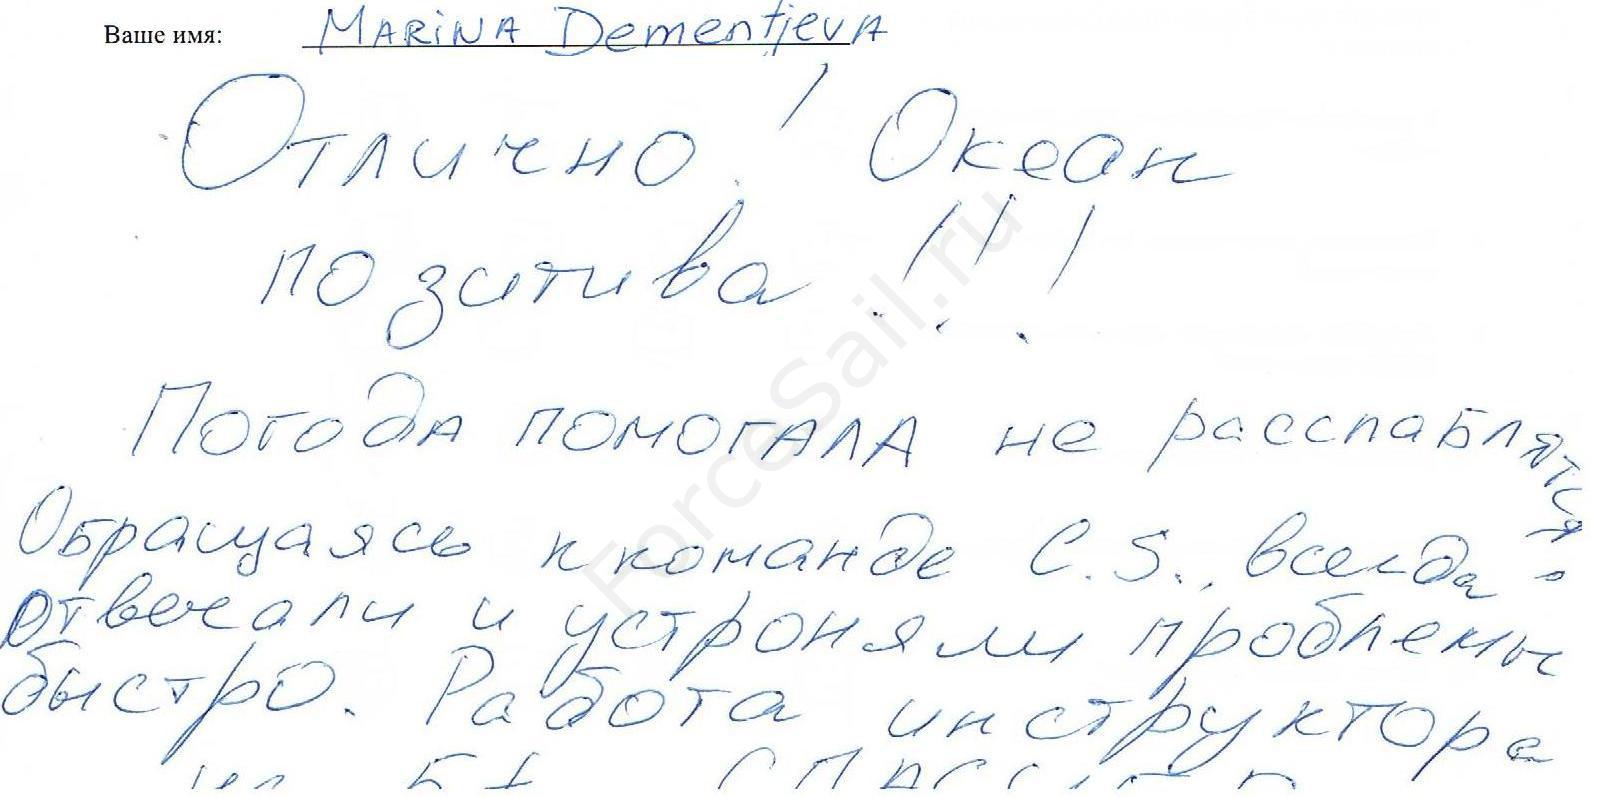 Ваше имя: MARINA Dementjeva
Отлично! Океан
позитива!!!
Погода помогала не расслаблятся.
Обращаясь к команде C.S., всегда
отвечали и устроняли проблемы
быстро. Работа инструктора
ForceSail.ru